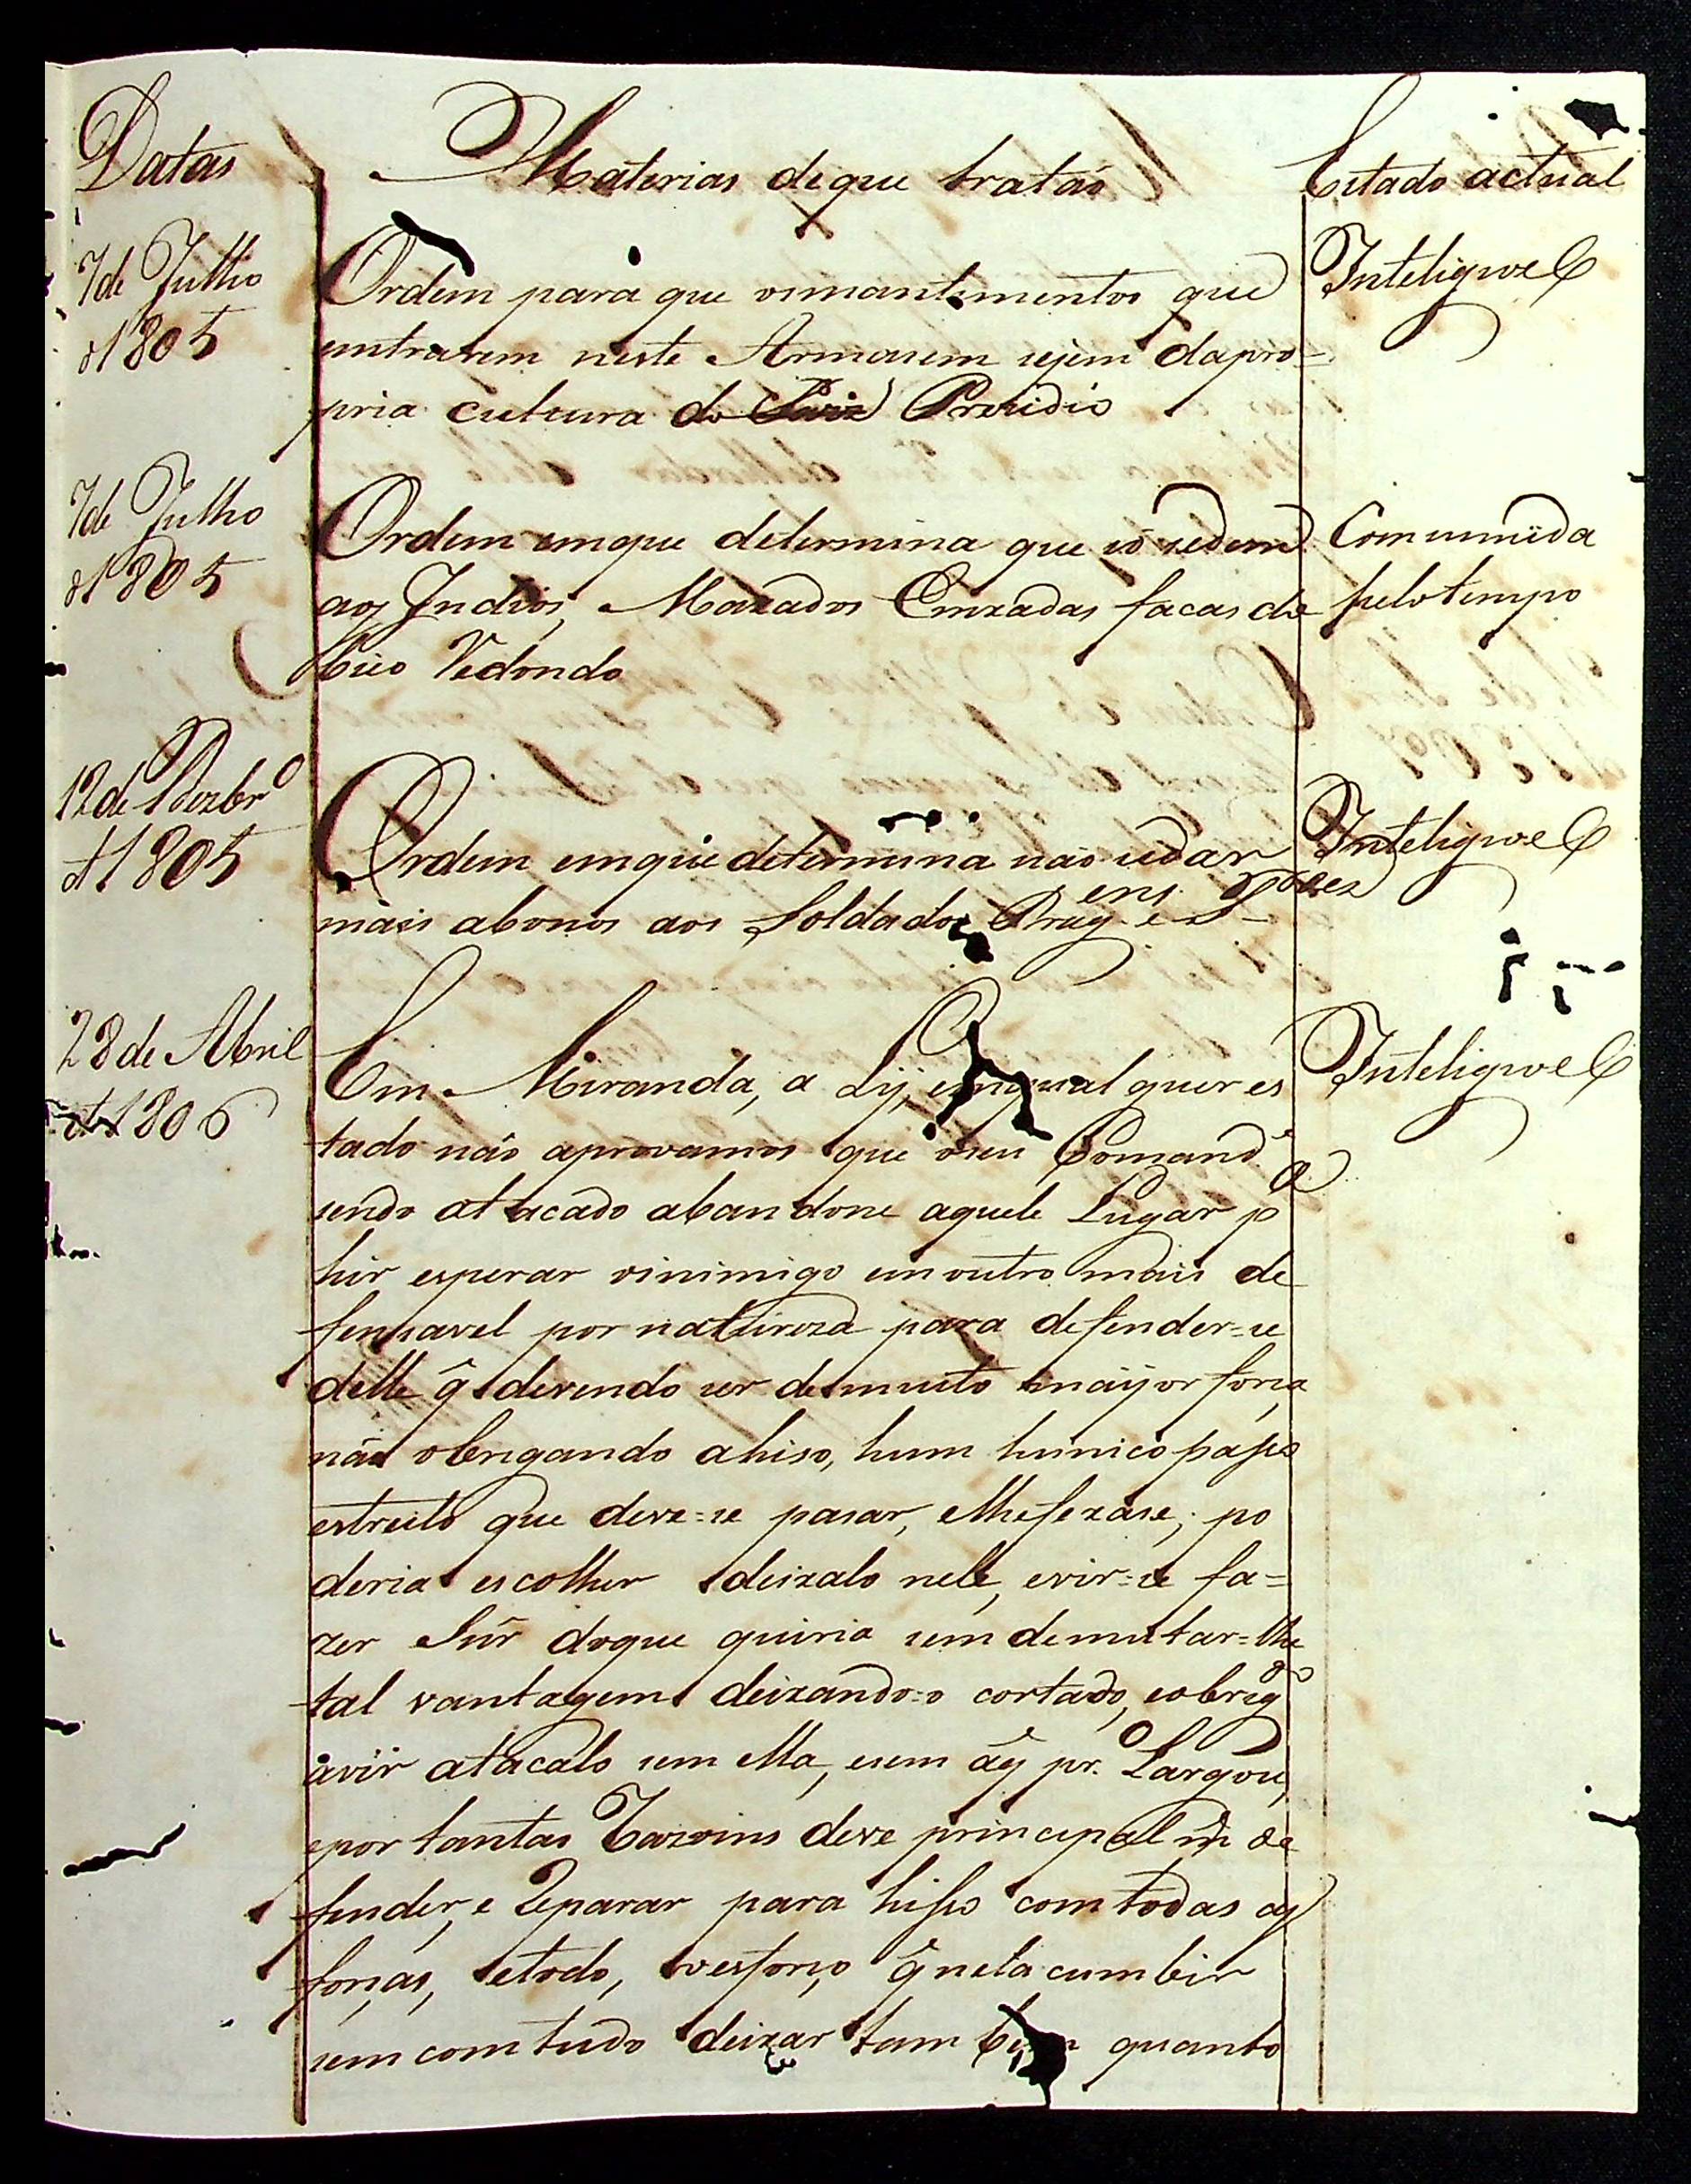 Datas
Materias deque tratão
Estado actual
7 de Julho
d 1805
Ordem para que osmantimentos que
entrarem neste Armasem sejem dapro=
pria cultura do Prezidio
Inteligivel
7 de Julho
d 1805
Ordem emque determina que só sedem
aos Indios, Maxados Emxadas facas de
bico Redondo
Comummida
pelo tempo
12 de Dezbrº
d 1805
Ordem emque determina não sedar
mais abonos aos Soldados
Inteligivel
28 de Abril
d 1806
Em Miranda, a Ly, emqual quer es
tado não aprovamos que oseu Comand.e
sendo atacado abandone aquele Lugar pª
hir esperar oinimigo emoutro mais de
fensavel por natureza para defender=se
delle q̂ devendo ser demuito mayor força
não obrigando ahiso, hum hunico passo
estreito que deve=se pasar, elhefexase, po
deria escolher deixalo nele, evir=se fa=
zer Sñr doque queria sem demutar=lhe
tal vantagem deixando=o cortado, eobrigdo
avir atacalo sem ella, esem âq pr. Largou,
epor tantas Razoins deve principalmte de
fender, e Reparar para hisso com todas as
forças, etodo, oesforço q̂ nela cumbir
sem com tudo deixar tam bem quanto